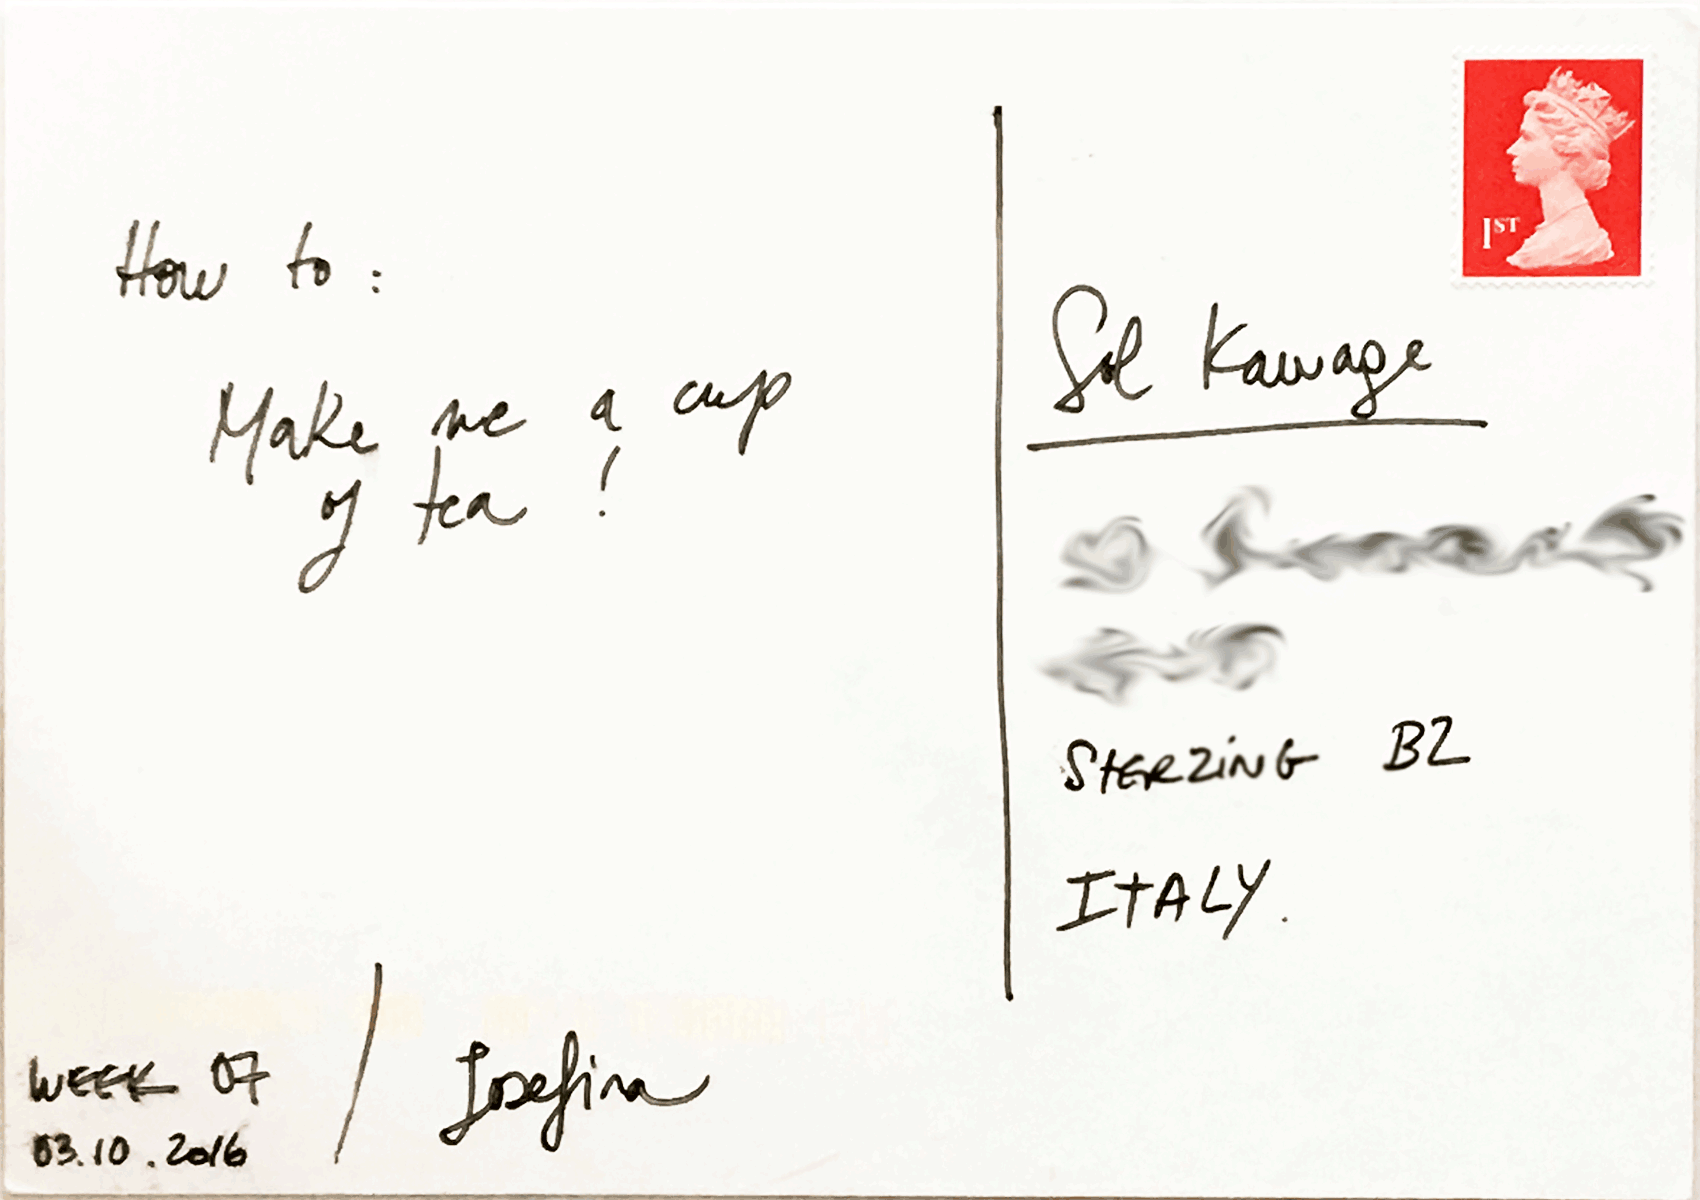 How to:
Make me a cup
of tea!
WEEK 07
03.10.2016
Josefina
1ST
Sol Kawage
STERZING BZ
ITALY.